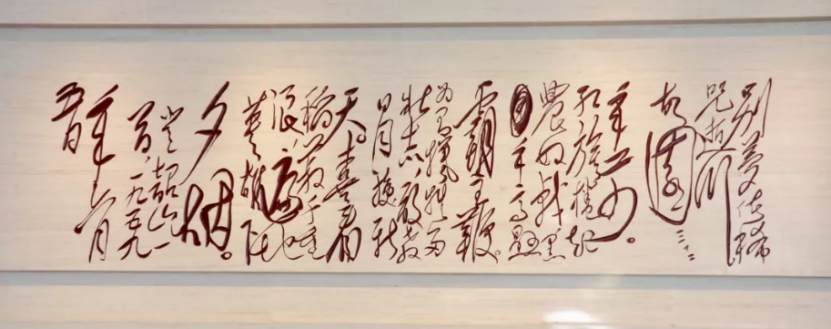 别夢依稀
咒逝
故園三十二
年前。
红旗捲起
農奴戟黑
手高悬
霸主鞭。
为有犧牲多
壮志敢教
日月换新
天。喜看
稻菽千重
浪遍地
英雄下
夕烟。
登韶山一
首一九五九
年六月